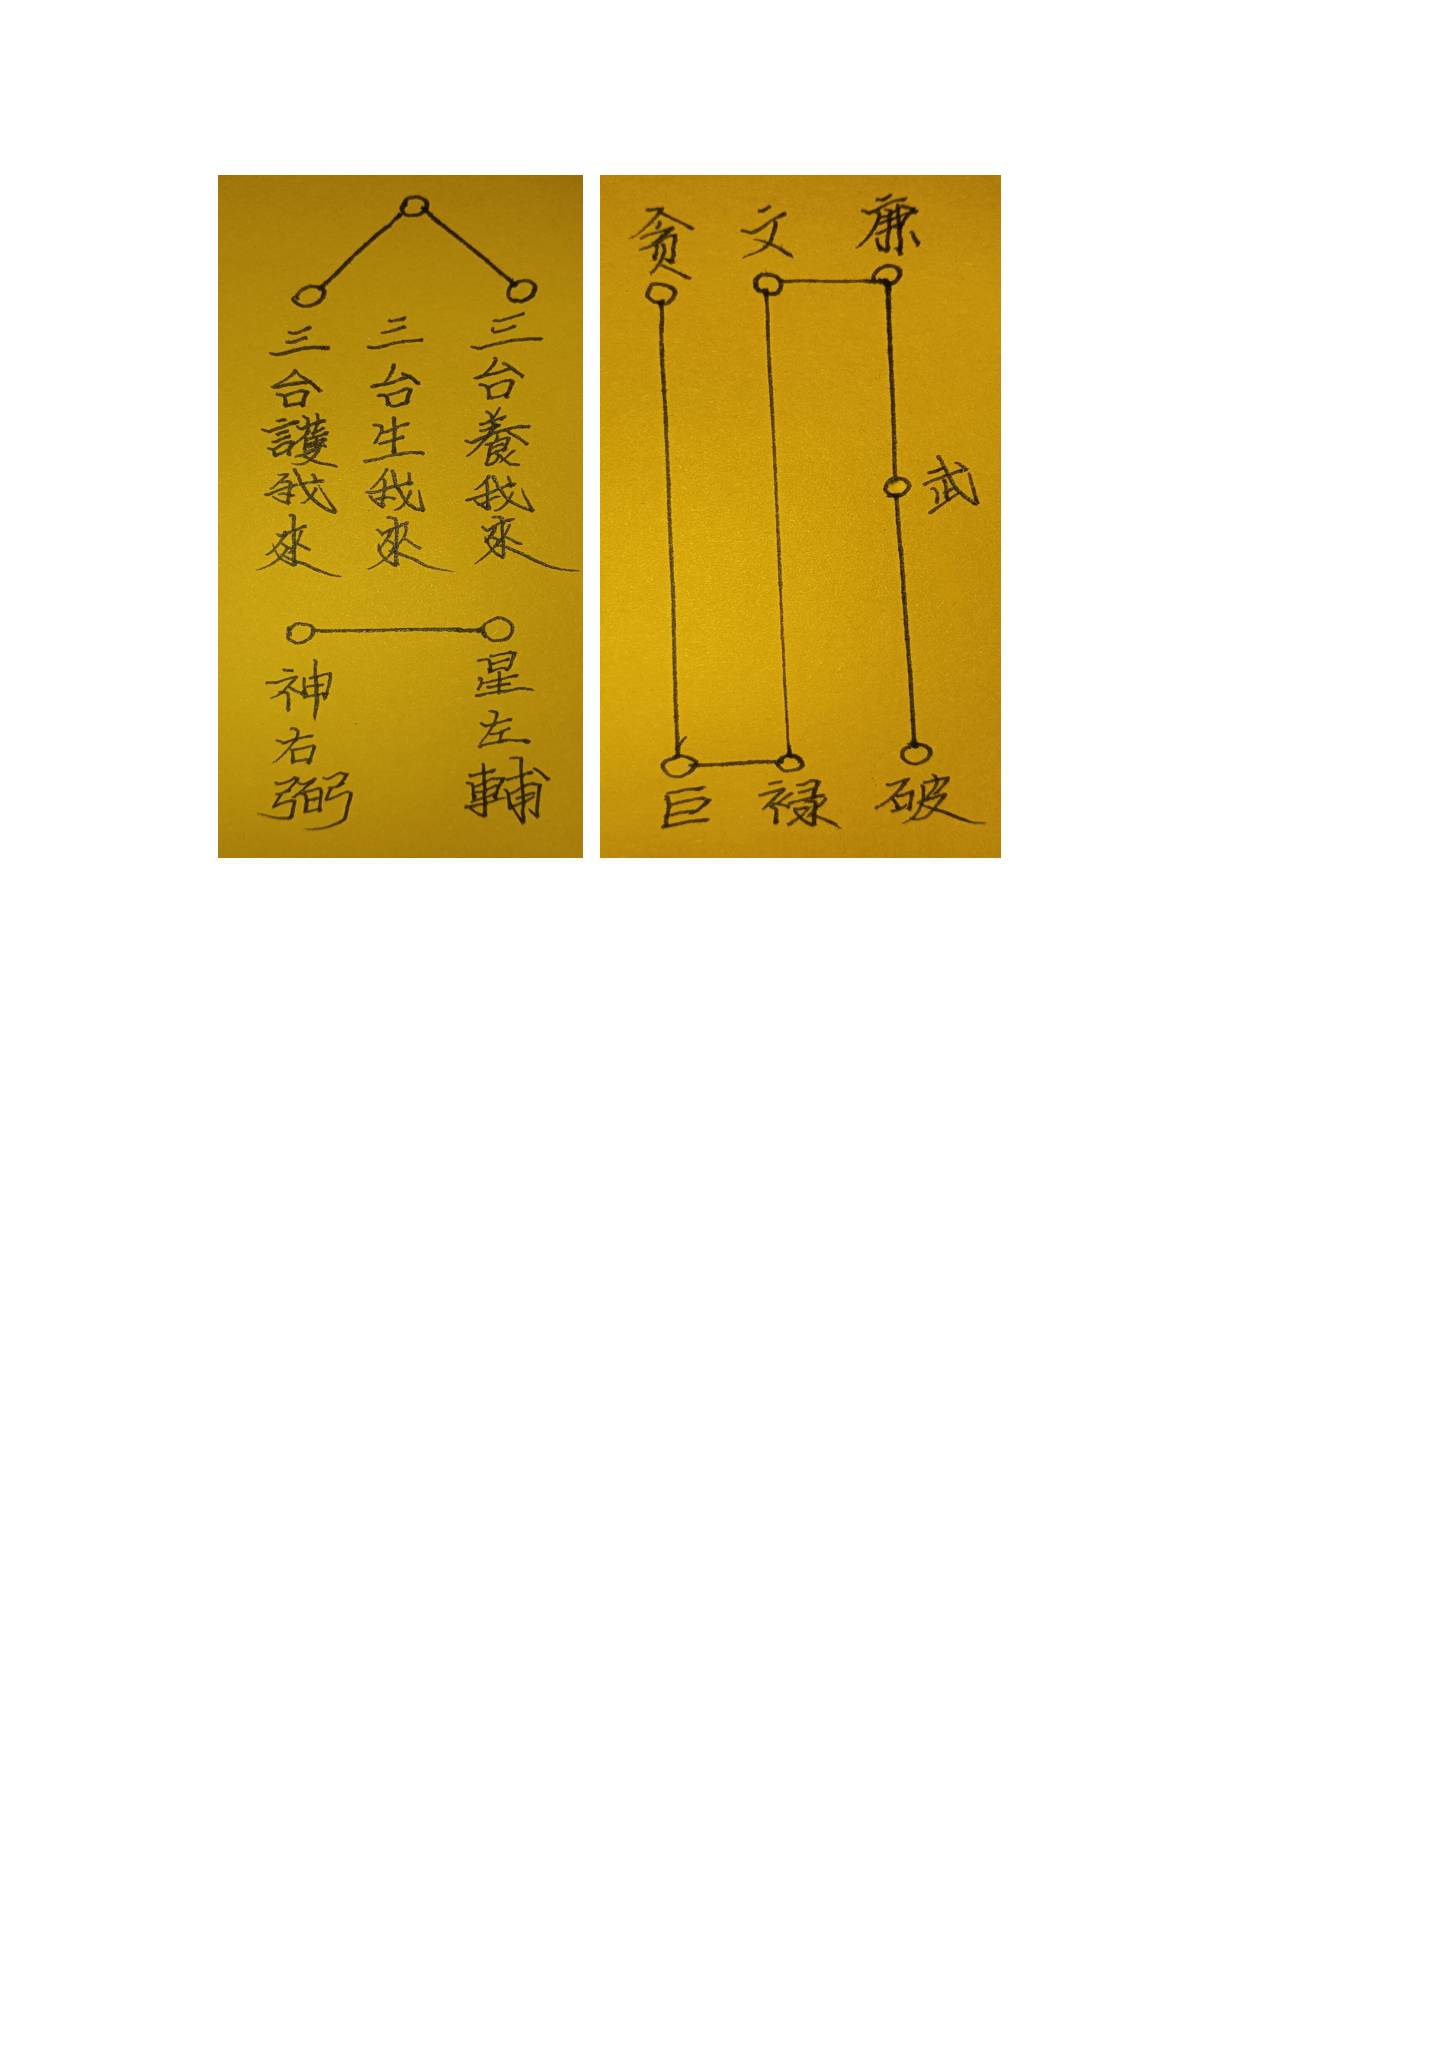 三台養我來
三台生我來
三台護我來
星左輔
神右弼
貪
文
廉
武
巨
禄
破